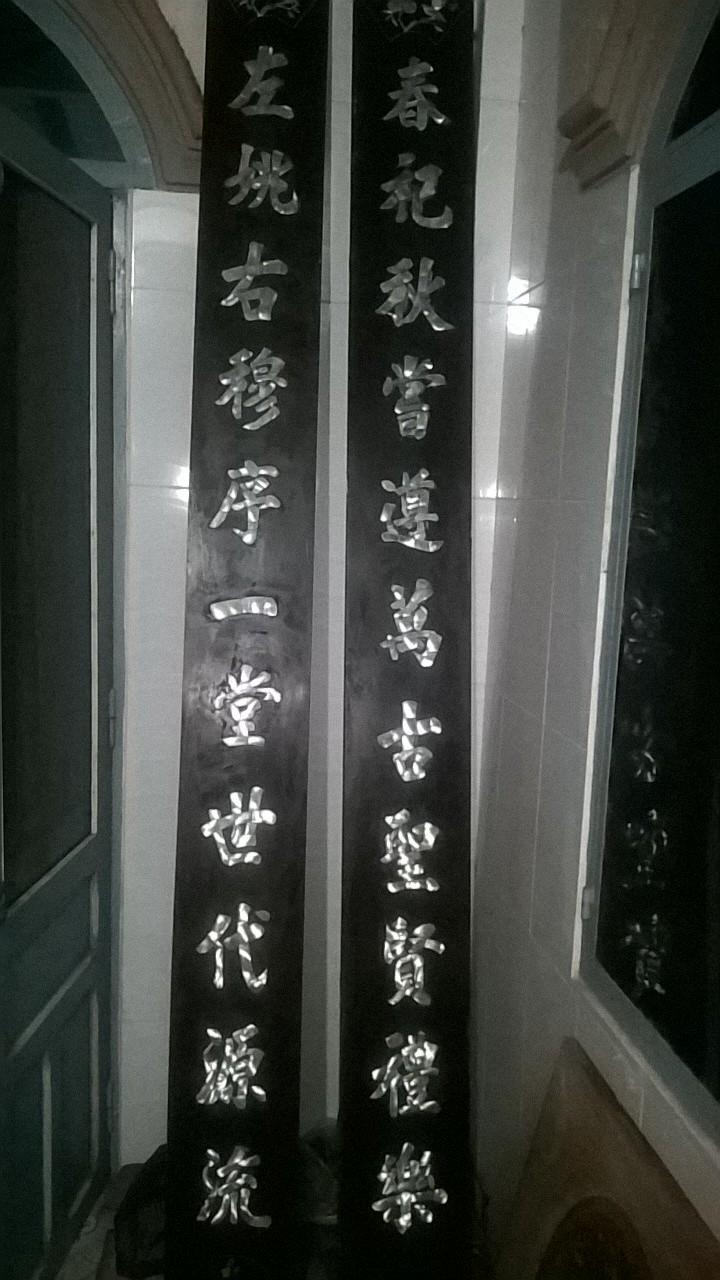 春祀秋嘗遵萬古聖賢禮樂
左姚右穆序一堂世代源流